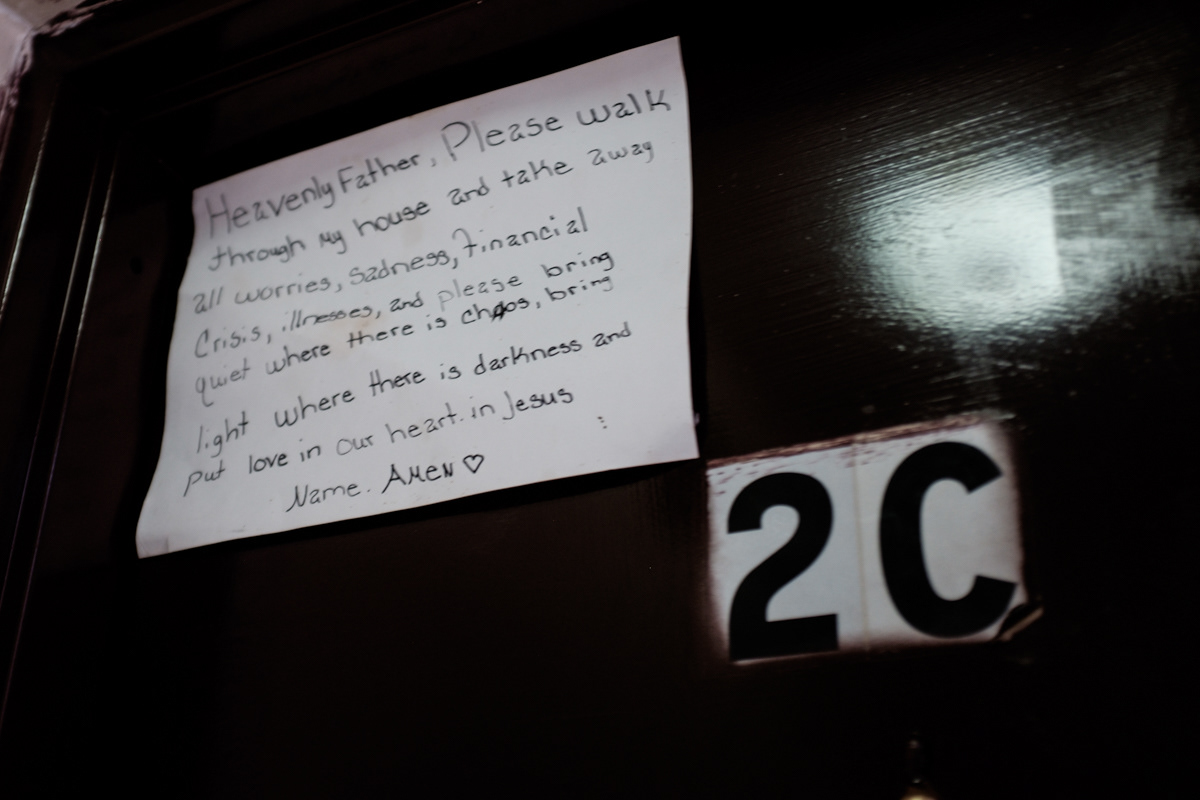 Heavenly Father, Please walk
through my house and take away
all worries, sadness, financial
Crisis, illnesses, and please bring
quiet where there is chaos, bring
light where there is darkness and
put love in our heart. in Jesus
Name. AMEN ♡
2C